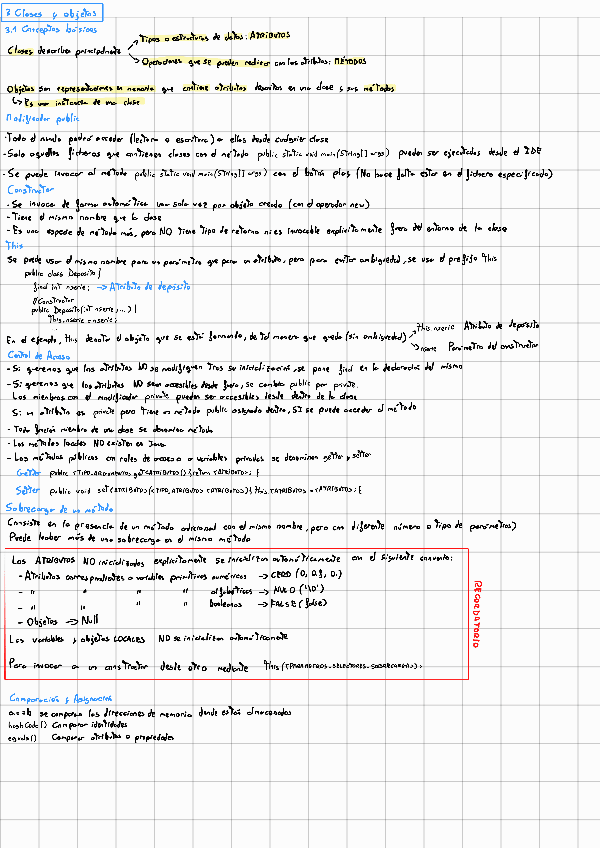 3 Clases y objetos
3.1 Conceptos básicos
Clases describe principalmente
→ Tipos o estructuras de datos: ATRIBUTOS
→ Operaciones que se pueden realizar con los atributos: MÉTODOS
Objetos son representaciones en memoria que contiene atributos descritos en una clase y sus métodos
↳ Es una instancia de una clase
Modificador public
- Todo el mundo podrá acceder (lectura o escritura) a ellos desde cualquier clase
- Solo aquellos ficheros que contienen clases con el método public static void main(String[] args) pueden ser ejecutados desde el IDE
- Se puede invocar al método public static void main(String[] args) con el botón play (No hace falta estar en el fichero especificado)
Constructor
- Se invoca de forma automática una sola vez por objeto creado (con el operador new)
- Tiene el mismo nombre que la clase
- Es una especie de método más, pero NO tiene tipo de retorno ni es invocable explícitamente fuera del entorno de la clase
This
Se puede usar el mismo nombre para un parámetro que para un atributo, pero para evitar ambigüedad, se usa el prefijo this
public class Deposito {
final int nserie; → Atributo de depósito
//Constructor
public Deposito(int nserie, ...) {
this.nserie = nserie;
En el ejemplo, this denota el objeto que se está formando, de tal manera que queda (sin ambigüedad)
→ this.nserie Atributo de depósito
→ nserie Parámetro del constructor
Control de Acceso
- Si queremos que los atributos NO se modifiquen tras su inicialización, se pone final en la declaración del mismo
- Si queremos que los atributos NO sean accesibles desde fuera, se cambia public por private.
Los miembros con el modificador private pueden ser accesibles desde dentro de la clase
Si un atributo es private pero tiene un método public asignado dentro, SI se puede acceder al método
- Toda función miembro de una clase se denomina método
- Los métodos locales NO existen en Java
- Los métodos públicos con roles de acceso a variables privadas se denominan getter y setter
Getter public <TIPO_ARGUMENTO> get<ATRIBUTO>() {return <ATRIBUTO>; }
Setter public void set<ATRIBUTO>(<TIPO_ATRIBUTO> <ATRIBUTO>) {this.<ATRIBUTO> = <ATRIBUTO>; }
Sobrecarga de un método
Consiste en la presencia de un método adicional con el mismo nombre, pero con diferente número o tipo de parámetros)
Puede haber más de una sobrecarga en el mismo método
Los ATRIBUTOS NO inicializados explícitamente se inicializan automáticamente con el siguiente convenio:
- Atributos correspondientes a variables primitivas numéricas → CERO (0, 0.f, 0.)
- " " " " alfabéticas → NULO ('\0')
- " " " " booleanas → FALSE (false)
- Objetos → Null
Las variables y objetos LOCALES NO se inicializan automáticamente
Para invocar a un constructor desde otro mediante this(<PARAMETROS_SELECTORES_SOBRECARGA>);
RECORDATORIO
Comparación y Asignación
a==b se comparan las direcciones de memoria donde están almacenados
hashCode() Comparar identidades
equals() Comparar atributos o propiedades